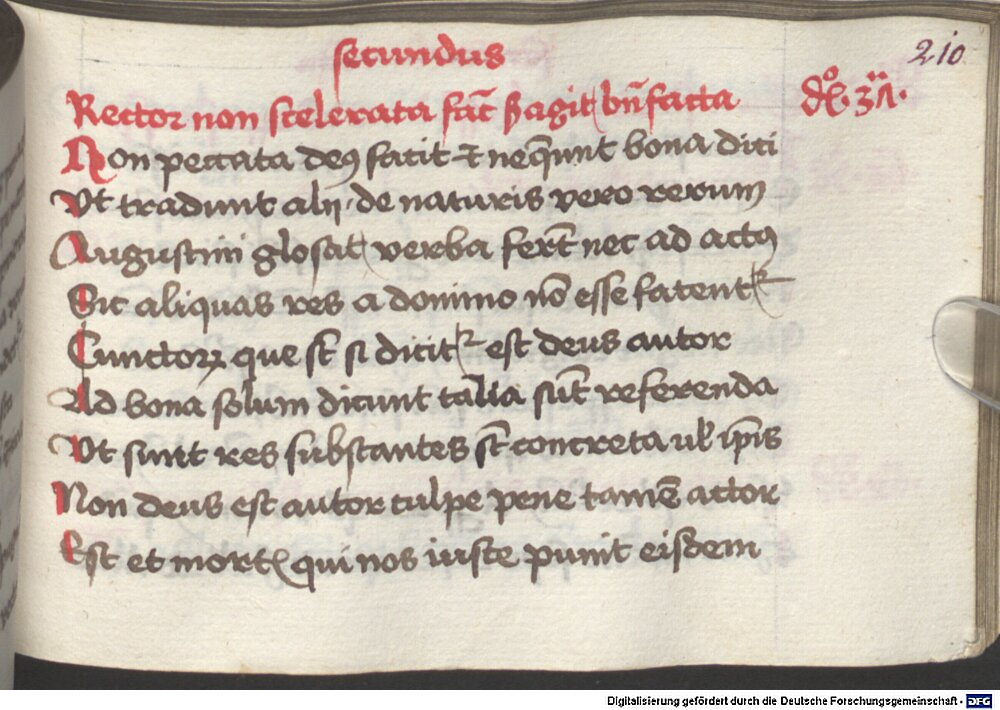 secundus
210
Rector non scelerata fac̄ s̄ agit bn̄facta
dͦ. 37ᵃ.
Non peccata deꝰ facit ⁊ neq̄unt bona dici
Ut tradunt alij · de naturis vero rerum
Augustini glosat verba fert̄ nec ad actꝰ
Sic aliquas res a domino nō esse fatentᷣ
Cunctoꝝ que st̄ si dicitᷣ est deus autor
Ad bona solum dicunt talia sūt referenda
Ut sint res substantes st̄ concreta ul̄ ip̄is
Non deus est autor culpe pene tamē actor
Est et mortꝭ qui nos iuste punit eisdem
Digitalisierung gefördert durch die Deutsche Forschungsgemeinschaft - DFG